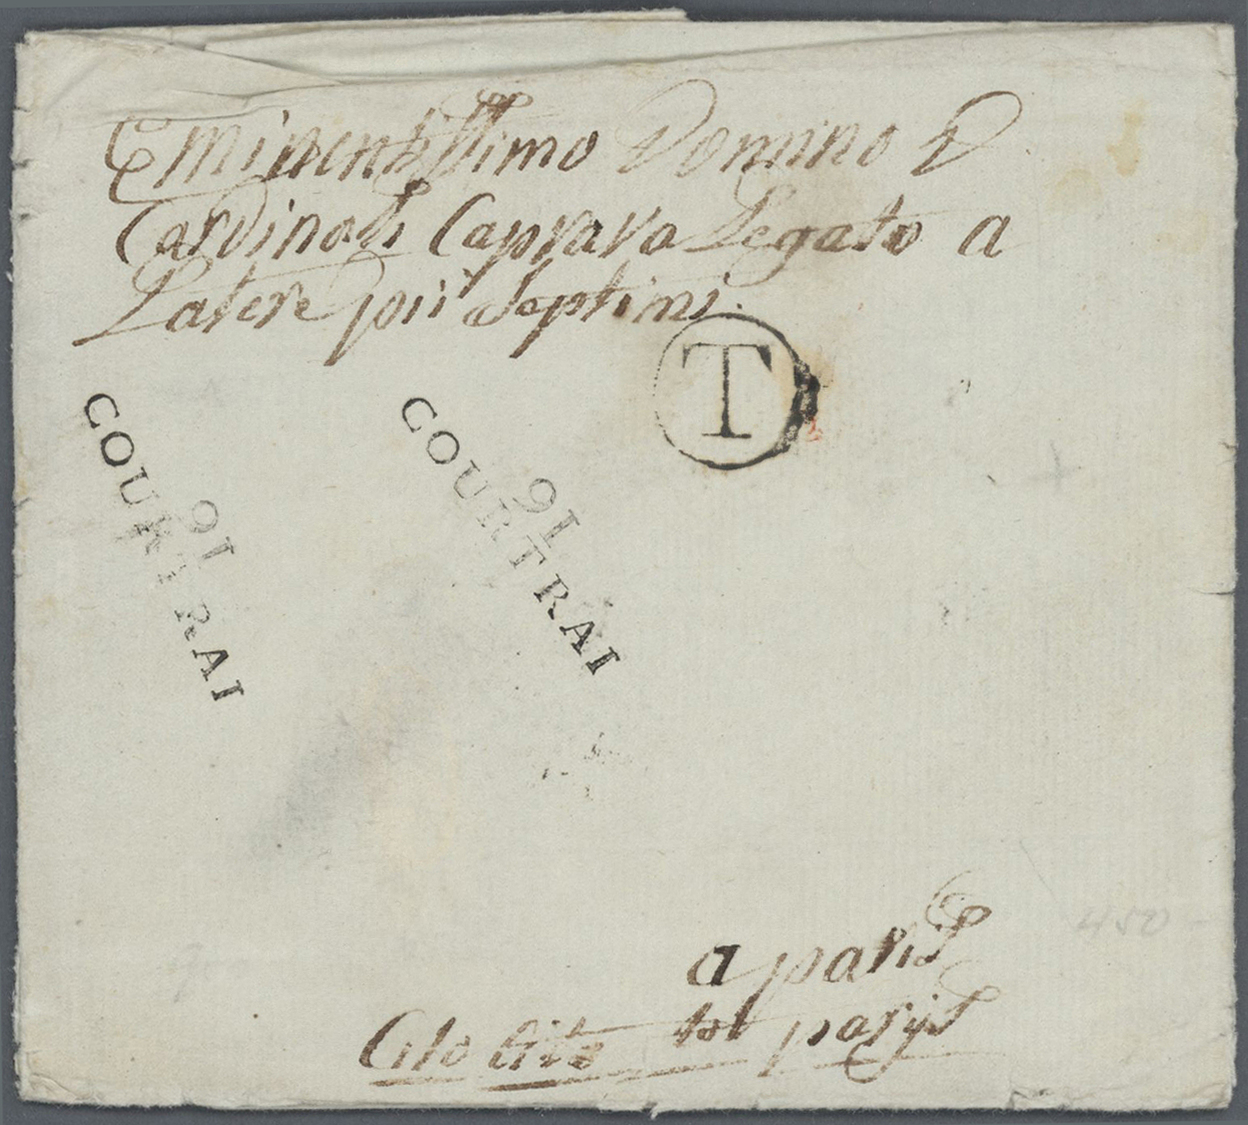 Eminentissimo Domino D
Cardinali Caprara Legato a
Latere pii Septimi.
T
91
COURTRAI
91
COURTRAI
a paris
Cito Cito tot parijs
450